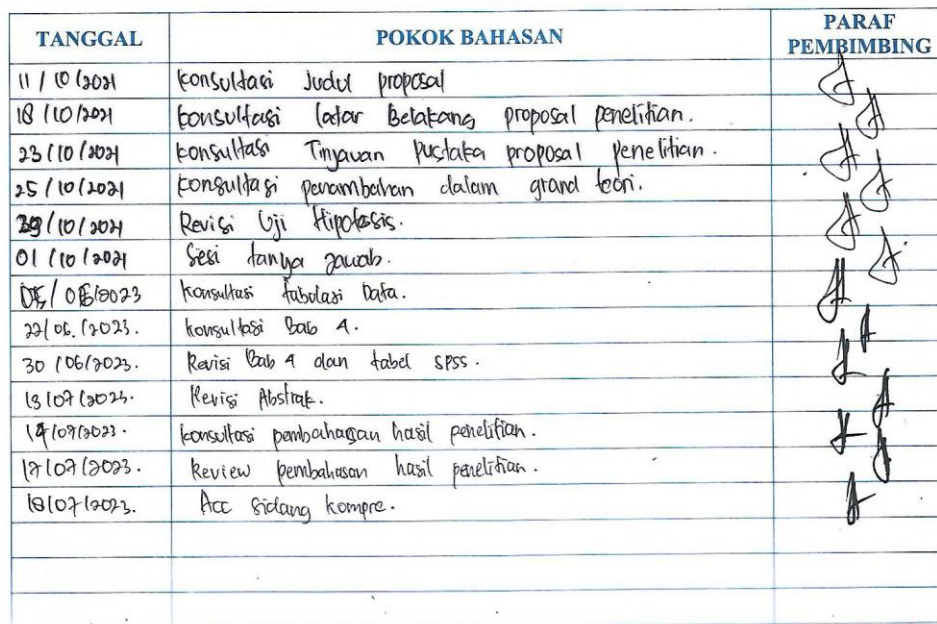 TANGGAL POKOK BAHASAN PARAF PEMBIMBING
11/10/2021 konsultasi Judul proposal
18/10/2021 konsultasi latar Belakang proposal penelitian.
23/10/2021 konsultasi Tinjauan Pustaka proposal penelitian.
25/10/2021 konsultasi penambahan dalam grand teori.
/10/2021 Revisi Uji Hipotesis.
01/10/2021 Sesi tanya jawab.
2023 konsultasi tabulasi Data.
22/06/2023. konsultasi Bab 4.
30/06/2023. Revisi Bab 4 dan tabel SPSS.
13/07/2023. Revisi Abstrak.
2023. konsultasi pembahasan hasil penelitian.
17/07/2023. Review pembahasan hasil penelitian.
18/07/2023. Acc sidang kompre.